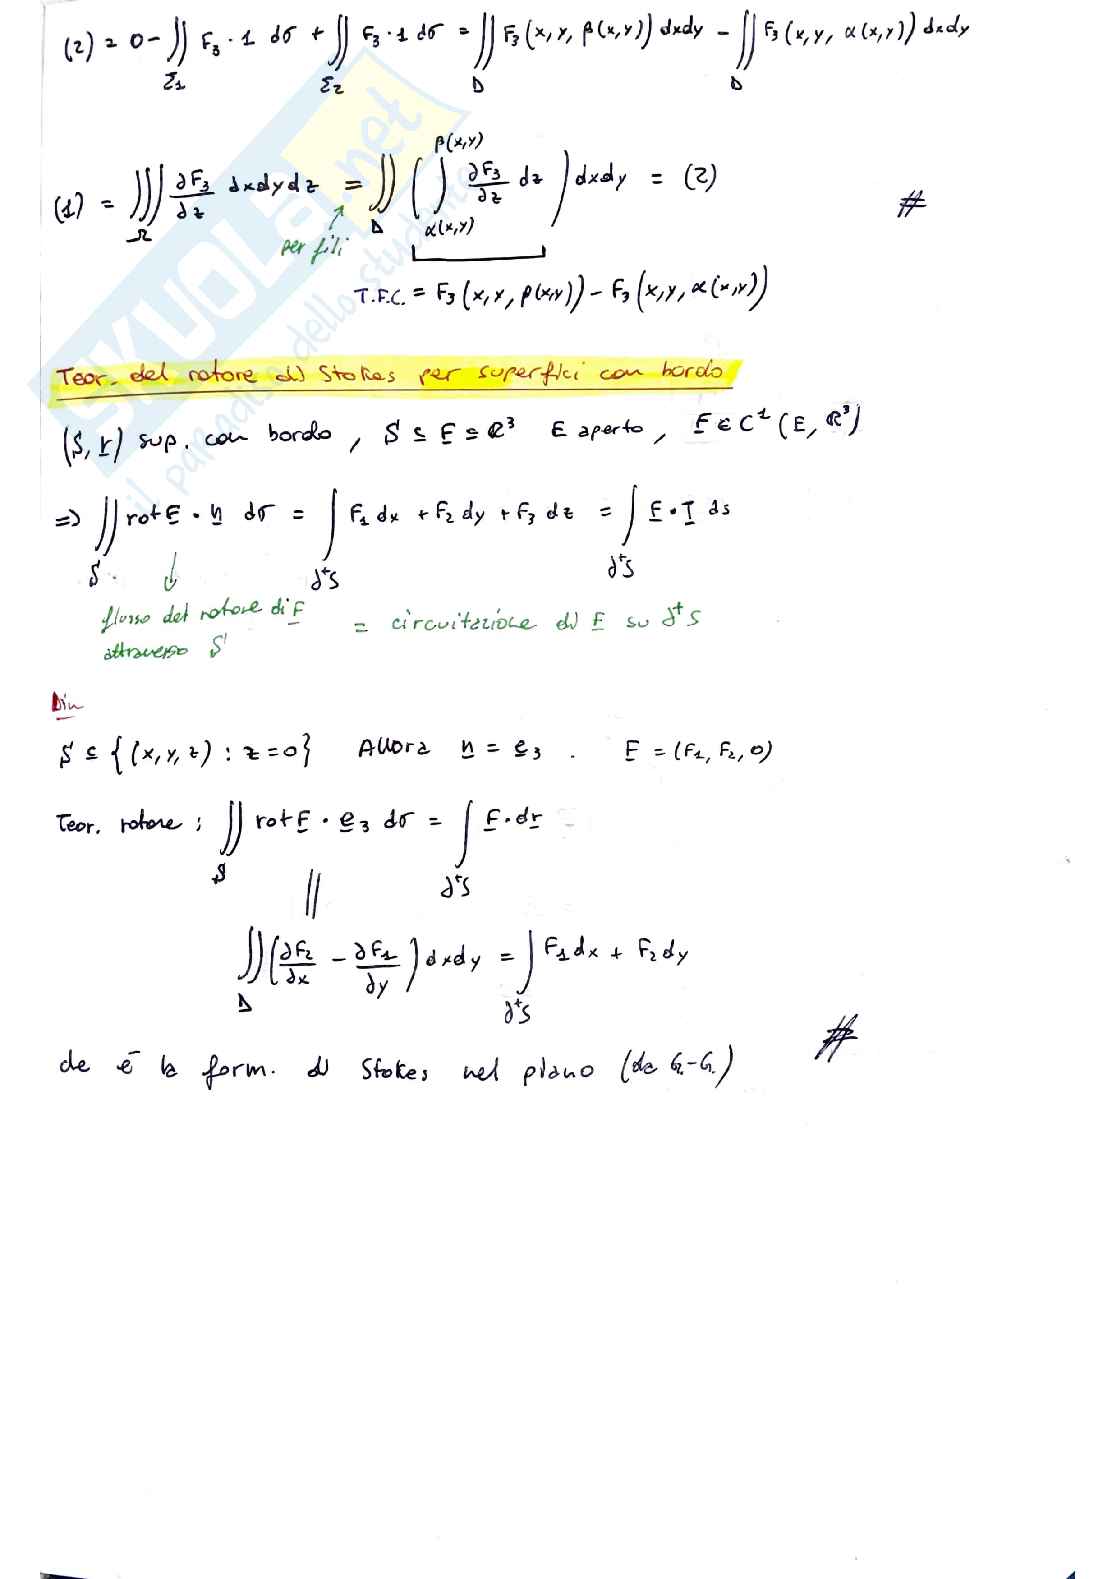 (2) = 0 - ∬_{Σ1} F₃ · 1 dσ + ∬_{Σ2} F₃ · 1 dσ = ∬_D F₃(x, y, β(x,y)) dxdy - ∬_D F₃(x, y, α(x,y)) dxdy
(1) = ∭_Ω ∂F₃/∂z dxdydz = ∬_D ( ∫_{α(x,y)}^{β(x,y)} ∂F₃/∂z dz ) dxdy = (2) #
per fili
T.F.C. = F₃(x, y, β(x,y)) - F₃(x, y, α(x,y))
Teor. del rotore di Stokes per superfici con bordo
(S, r) sup. con bordo, S ⊆ E ⊆ ℝ³ E aperto, F ∈ C¹(E, ℝ³)
=> ∬_S rot F · n dσ = ∫_{∂⁺S} F₁ dx + F₂ dy + F₃ dz = ∫_{∂⁺S} F · T ds
flusso del rotore di F
attraverso S
= circuitazione di F su ∂⁺S
Dim
S ⊆ {(x, y, z) : z = 0} Allora n = e₃ . F = (F₁, F₂, 0)
Teor. rotore : ∬_S rot F · e₃ dσ = ∫_{∂⁺S} F · dr
||
∬_D (∂F₂/∂x - ∂F₁/∂y) dxdy = ∫_{∂⁺S} F₁dx + F₂dy
che è la form. di Stokes nel piano (da G.-G.) #
SKUOLA.net
il paradiso dello studente